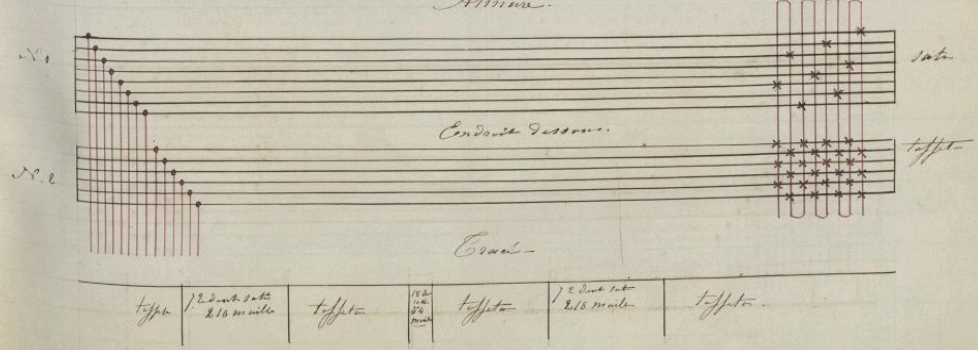 Armure.
N. 1
satin
Endroit dessous.
N. 2
taffetas
Tracé
taffetas
72 dents satin
216 mailles
taffetas
taffetas
72 dents satin
216 mailles
taffetas.